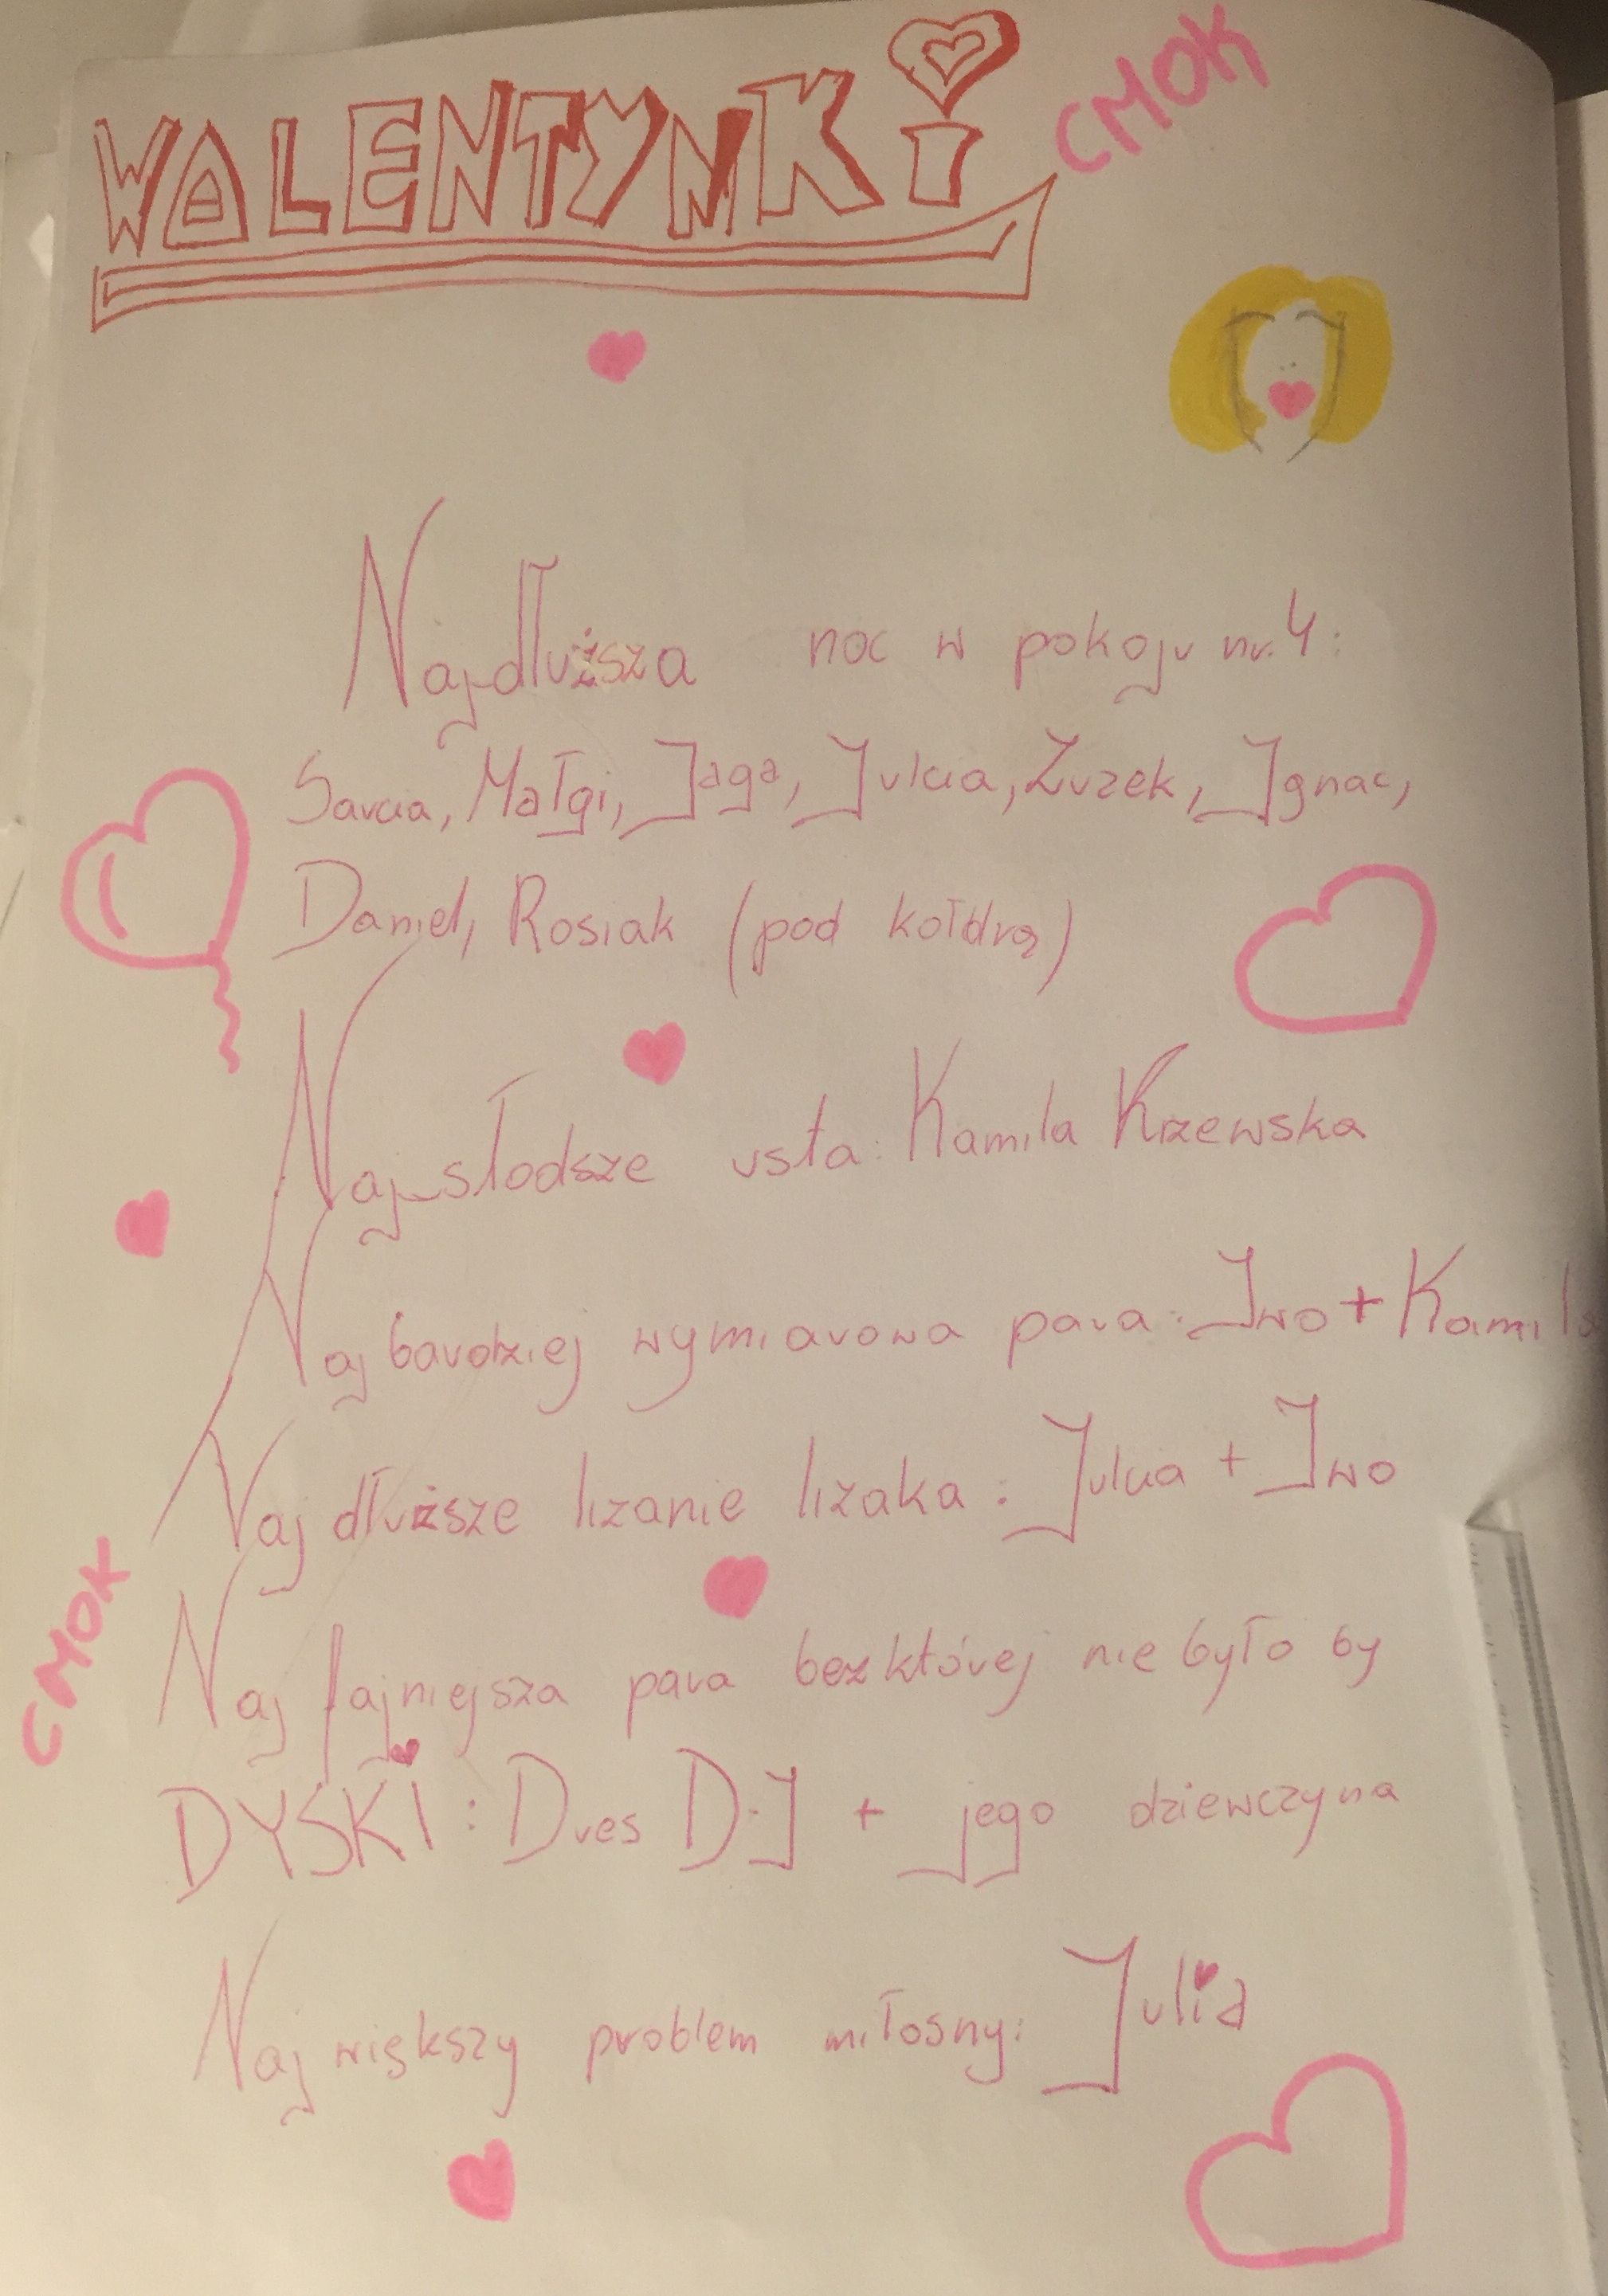 WALENTYNKi
CMOK
Najdłuższa noc w pokoju nr. 4:
Sarcia, Małgi, Jaga, Julcia, Żurek, Ignac,
Daniel, Rosiak (pod kołdrą)
Najsłodsze usta: Kamila Krzewska
Najbardziej wymiarowa para: Iwo + Kamila
Naj dłuższe lizanie lizaka: Julcia + Iwo
CMOK
Naj fajniejsza para bez której nie było by
DYSKi: Dres D.J + jego dziewczyna
Naj większy problem miłosny: Julia